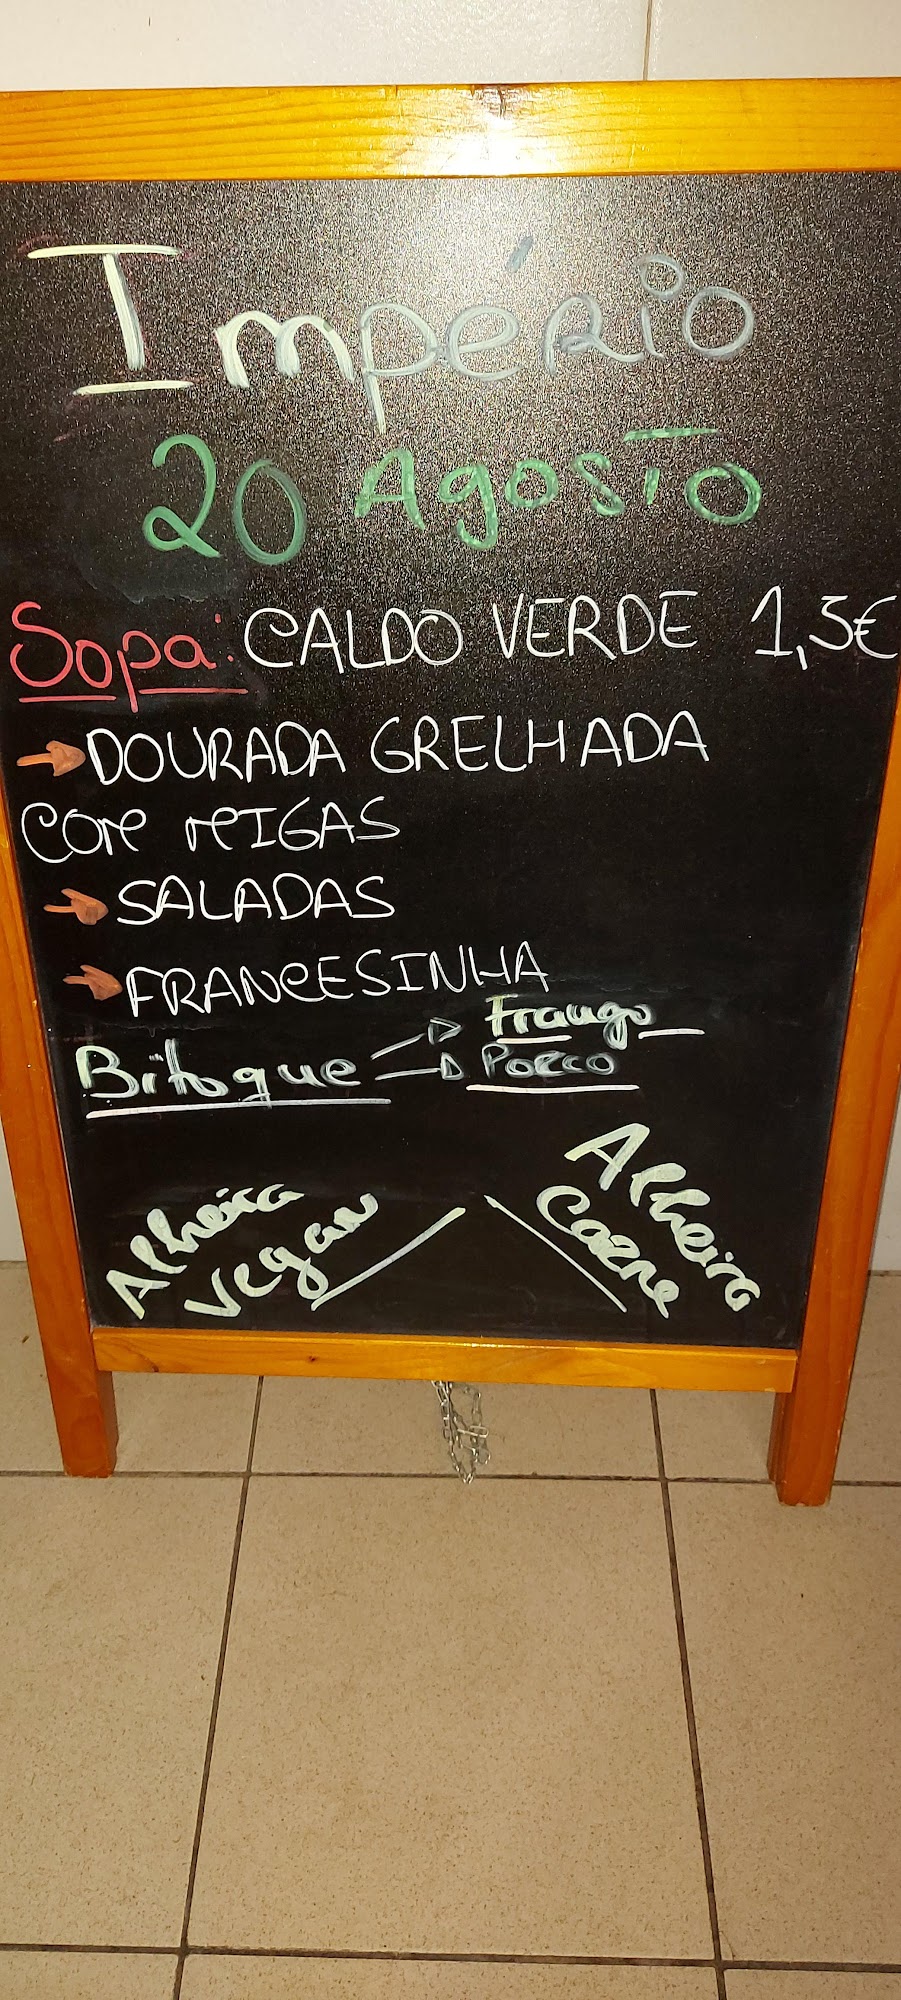 Império
20 Agosto
Sopa: CALDO VERDE 1,5€
DOURADA GRELHADA
COM MIGAS
SALADAS
FRANCESINHA
Bitoque Frango
Porco
Alheira
Vegan
Alheira
Carne